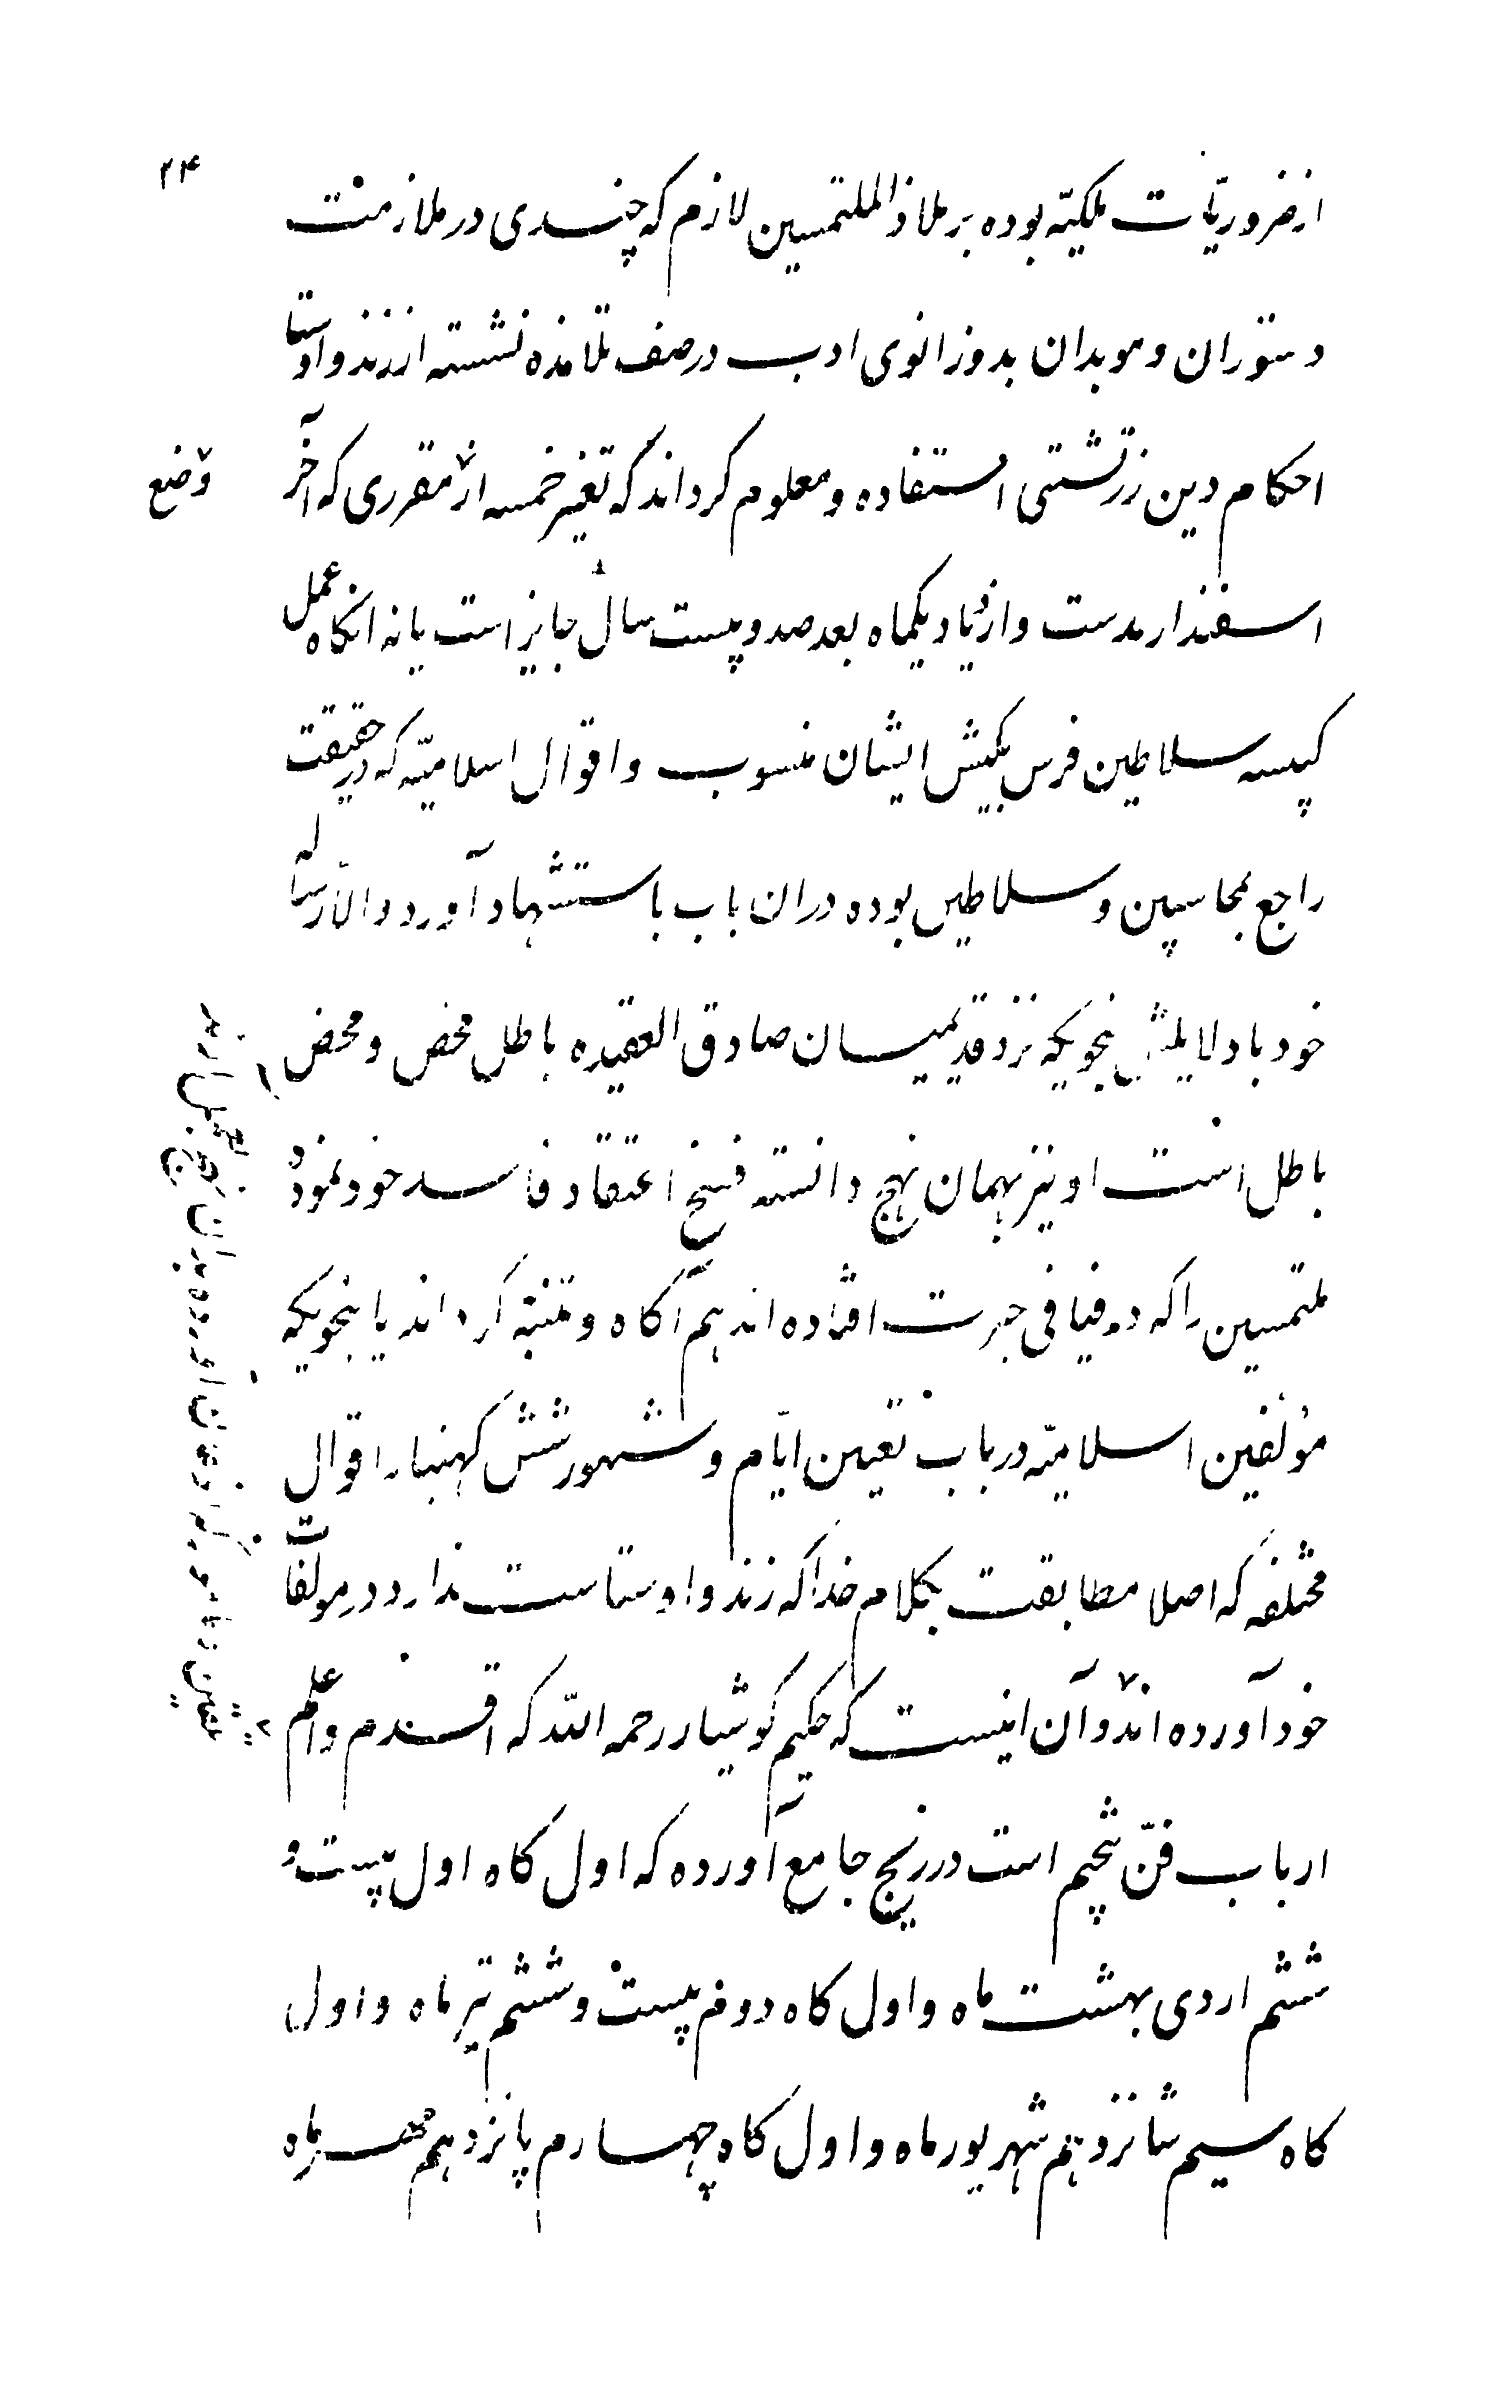 ۲۴
از ضروریات ملکیّه بوده بر ملاذ الملتمسین لازم که چندی در ملازمت
دستوران و موبدان بدوزانوی ادب در صف تلامذه نشسته از زند و اوستا
احکام دین زرتشتی استفاده و معلوم کرداند که تغیر خمسه از مقرری که آخر
وضع
اسفندارمدست و ازدیاد یکماه بعد صد و بیست سال جایز است یا نه انکاه عمل
کبیسه سلاطین فرس بکیش ایشان منسوب و اقوال اسلامیّه که در حقیقت
راجع بمحاسبین و سلاطین بوده دران باب باستشهاد آورد و الّا رساله
خود با دلایلش بنحویکه نزد قدیمیان صادق العقیده باطل محض و محض
باطل است او نیز بهمان نهج دانسته فسخ اعتقاد فاسد خود نموده
ملتمسین را که در فیافی حیرت افتاده اند هم آکاه و متنبّه کرداند یا بنحویکه
مؤلفین اسلامیّه در باب تعین ایّام و شهور شش کهنبار اقوال
مختلفه که اصلا مطابقت بکلام خدا که زند و اوستاست ندارد در مولّفات
خود آورده اند و آن اینست که حکیم کوشیار رحمه اللّه که اقدم و اعلم
ارباب فنّ تنجیم است در زیج جامع آورده که اول کاه اول بیست و
ششم اردی بهشت ماه و اول کاه دوم بیست و ششم تیر ماه و اول
کاه سیم شانزدهم شهریور ماه و اول کاه چهارم پانزدهم مهر ماه